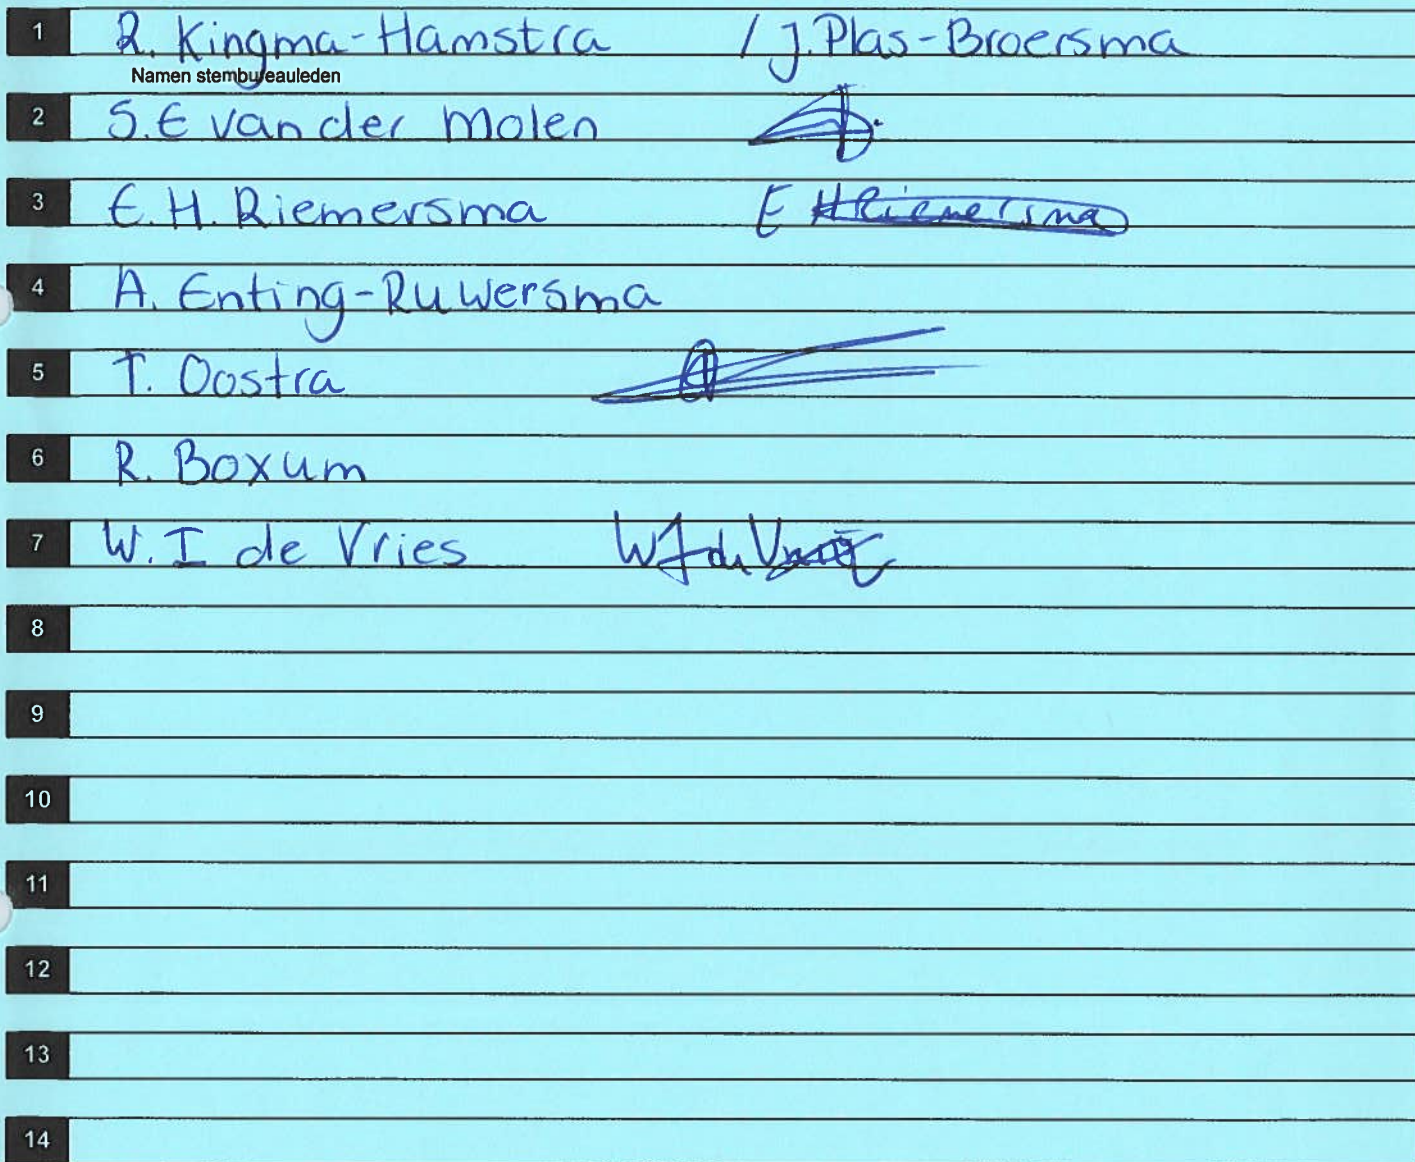 1 R. Kingma-Hamstra / J. Plas-Broersma
Namen stembureauleden
2 S.E van der Molen
3 E.H. Riemersma E H Riemersma
4 A. Enting-Ruwersma
5 T. Oostra
6 R. Boxum
7 W.I de Vries WI de Vries
8
9
10
11
12
13
14